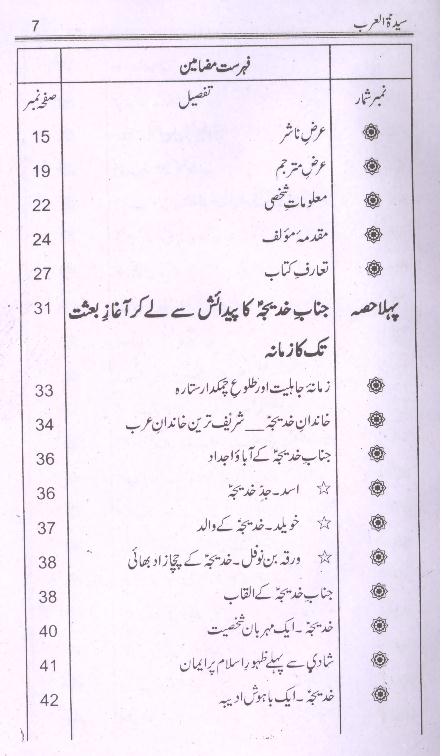 سیدۃ العرب 7
فہرست مضامین
نمبر شمار تفصیل صفحہ نمبر
عرضِ ناشر 15
عرضِ مترجم 19
معلوماتِ شخصی 22
مقدمۂ مؤلف 24
تعارفِ کتاب 27
پہلا حصہ جنابِ خدیجہؑ کا پیدائش سے لے کر آغازِ بعثت 31
تک کا زمانہ
زمانۂ جاہلیت اور طلوعِ چمکدار ستارہ 33
خاندانِ خدیجہؑ __ شریف ترین خاندانِ عرب 34
جنابِ خدیجہؑ کے آباؤ اجداد 36
☆ اسد۔ جدِّ خدیجہؑ 36
☆ خویلد۔ خدیجہؑ کے والد 37
☆ ورقہ بن نوفل۔ خدیجہؑ کے چچا زاد بھائی 38
جنابِ خدیجہؑ کے القاب 38
خدیجہؑ۔ ایک مہربان شخصیت 40
شادی سے پہلے ظہورِ اسلام پر ایمان 41
خدیجہؑ۔ ایک باہوش ادیبہ 42